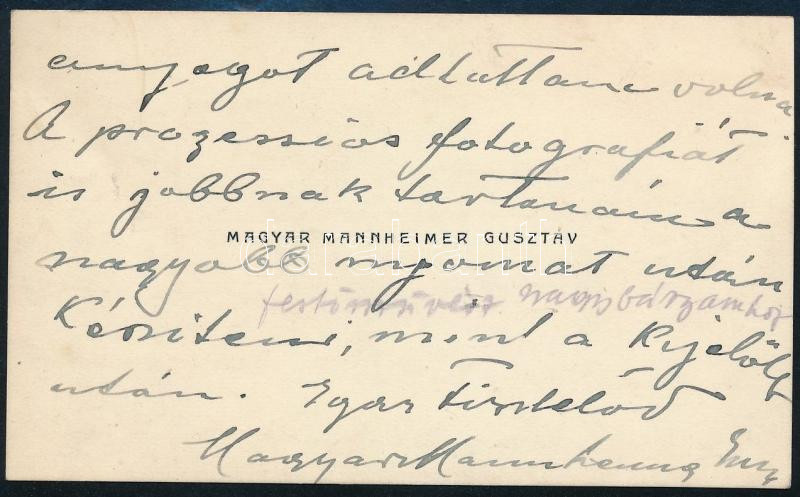 anyagot adtattam volna.
A prozessios fotografiát
is jobbnak tartanám a
MAGYAR MANNHEIMER GUSZTÁV
nagyobb nyomat után
festőművész nagybátyámhoz
készíteni, mint a kijelölt
után. Igaz tisztelőd
Magyar Mannheimer